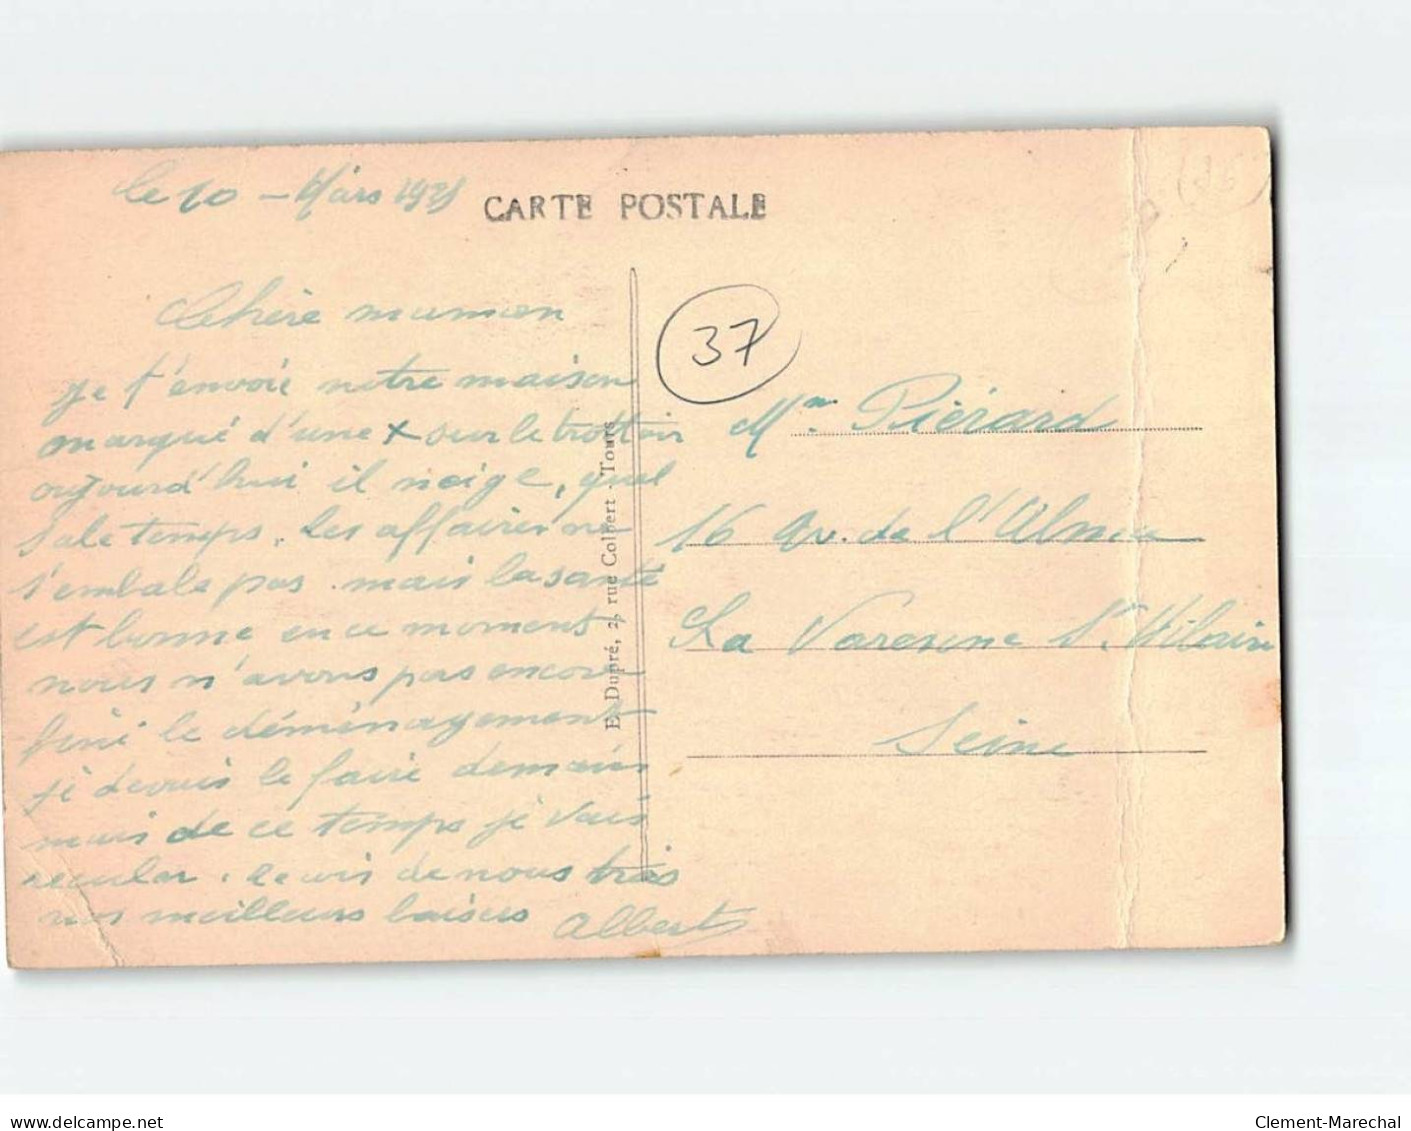 le 10 - Mars 1931
CARTE POSTALE
Chère maman
je t'envoie notre maison
marqué d'une x sur le trottoir
aujourd'hui il neige, quel
sale temps, les affaires ne
s'embale pas. mais la santé
est bonne en ce moment
nous n'avons pas encore
fini le déménagement
je devais le faire demain
mais de ce temps je vais
reculer. recois de nous trois
nos meilleurs baisers Albert
E. Dupré, 2, rue Colbert - Tours
37
Mm. Piérard
16 av. de l'Alma
La Varenne St. Hilaire
Seine
(26)
www.delcampe.net
Clement-Marechal